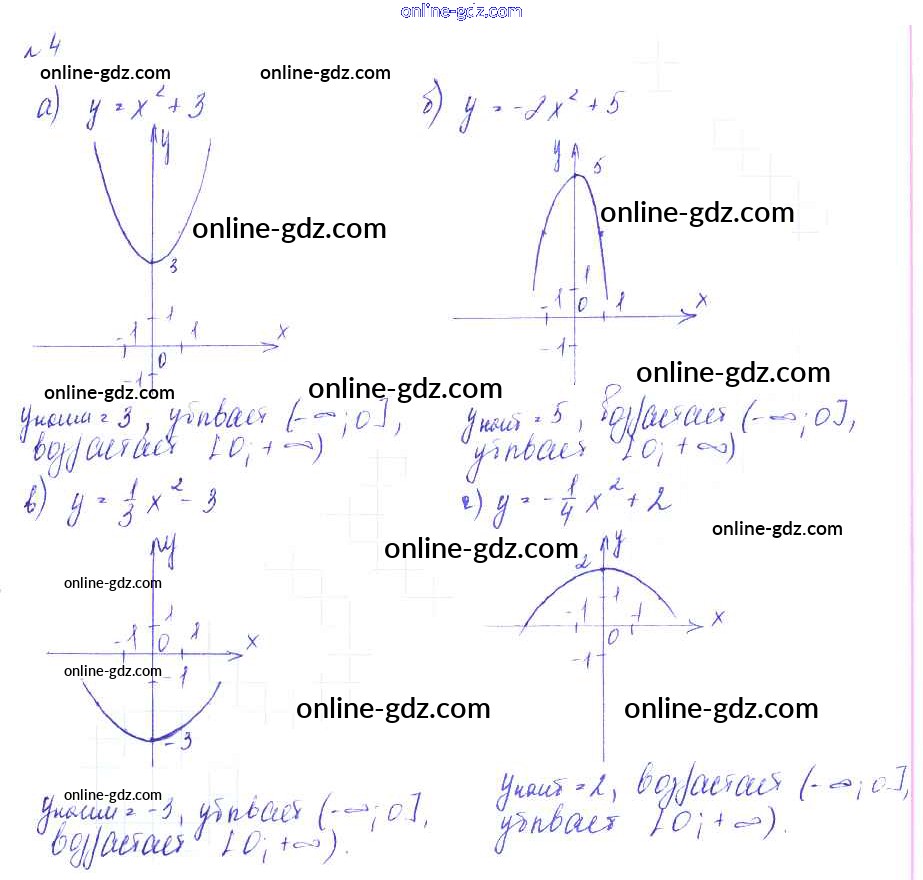 online-gdz.com
№4
online-gdz.com online-gdz.com
а) y = x² + 3 б) y = -2x² + 5
y y 5
online-gdz.com online-gdz.com
3
1 1
-1 1 x -1 0 1 x
0
-1 -1
online-gdz.com online-gdz.com online-gdz.com
yнаим = 3, убывает (-∞; 0], yнаиб = 5, возрастает (-∞; 0],
возрастает [0; +∞) убывает [0; +∞)
в) y = 1/3 x² - 3 г) y = -1/4 x² + 2
online-gdz.com
y online-gdz.com y
2
online-gdz.com
1 1
-1 0 1 x -1 0 1 x
online-gdz.com -1 -1
online-gdz.com online-gdz.com
-3
online-gdz.com
yнаим = -3, убывает (-∞; 0], yнаиб = 2, возрастает (-∞; 0],
возрастает [0; +∞). убывает [0; +∞).